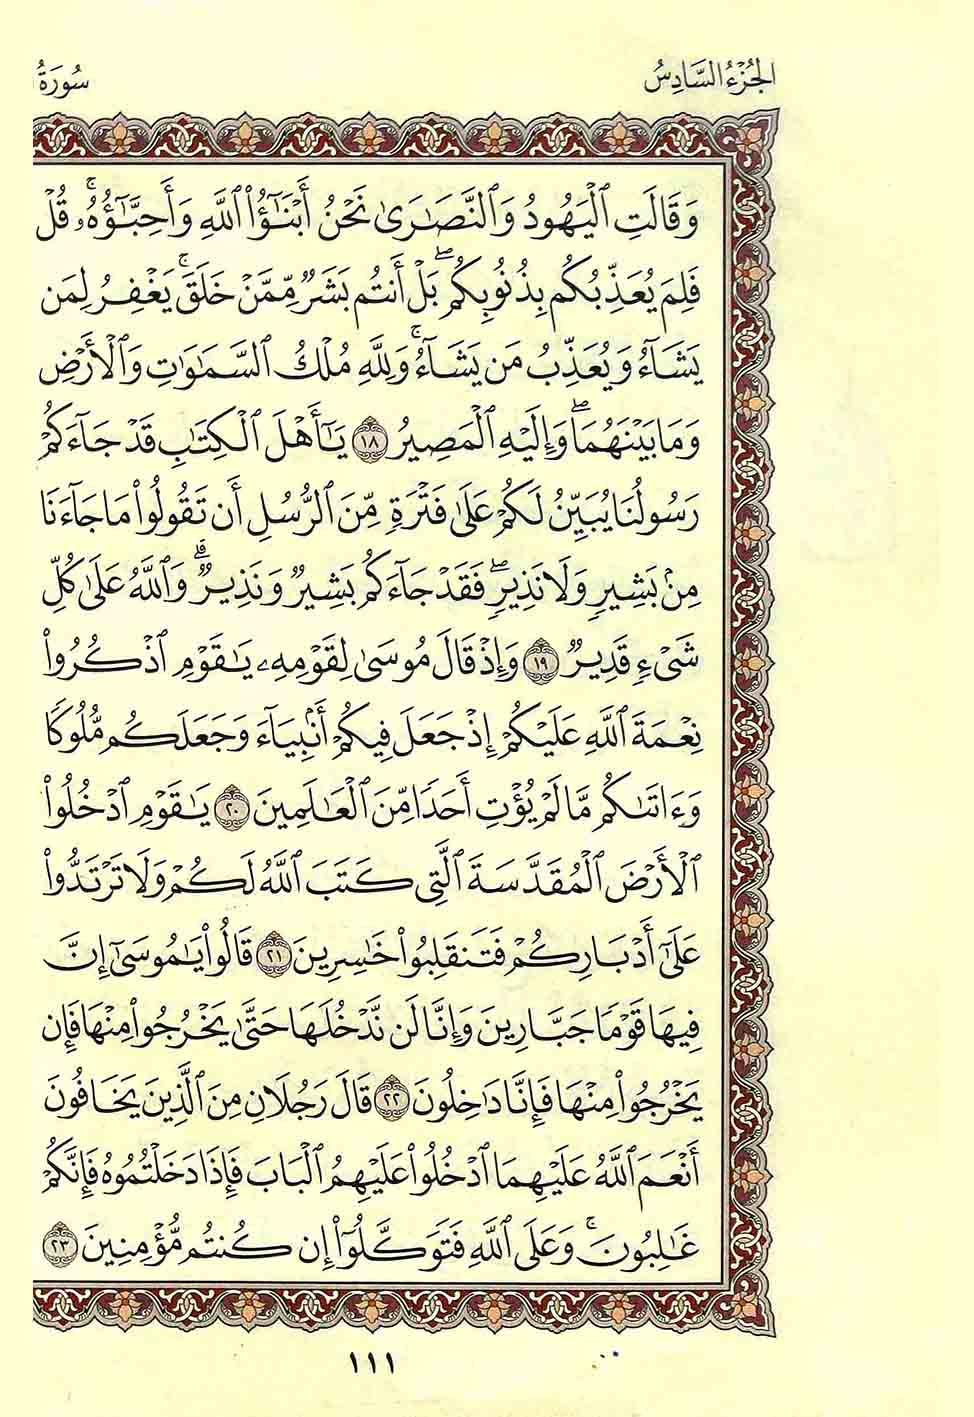 الجُزْءُ السَّادِسُ
سُورَةُ
وَقَالَتِ ٱلْيَهُودُ وَٱلنَّصَٰرَىٰ نَحْنُ أَبْنَٰٓؤُا۟ ٱللَّهِ وَأَحِبَّٰٓؤُهُۥۚ قُلْ
فَلِمَ يُعَذِّبُكُم بِذُنُوبِكُمۖ بَلْ أَنتُم بَشَرٌ مِّمَّنْ خَلَقَۚ يَغْفِرُ لِمَن
يَشَآءُ وَيُعَذِّبُ مَن يَشَآءُۚ وَلِلَّهِ مُلْكُ ٱلسَّمَٰوَٰتِ وَٱلْأَرْضِ
وَمَا بَيْنَهُمَاۖ وَإِلَيْهِ ٱلْمَصِيرُ ١٨ يَٰٓأَهْلَ ٱلْكِتَٰبِ قَدْ جَآءَكُمْ
رَسُولُنَا يُبَيِّنُ لَكُمْ عَلَىٰ فَتْرَةٍ مِّنَ ٱلرُّسُلِ أَن تَقُولُوا۟ مَا جَآءَنَا
مِنۢ بَشِيرٍ وَلَا نَذِيرٍۖ فَقَدْ جَآءَكُم بَشِيرٌ وَنَذِيرٌۗ وَٱللَّهُ عَلَىٰ كُلِّ
شَىْءٍ قَدِيرٌ ١٩ وَإِذْ قَالَ مُوسَىٰ لِقَوْمِهِۦ يَٰقَوْمِ ٱذْكُرُوا۟
نِعْمَةَ ٱللَّهِ عَلَيْكُمْ إِذْ جَعَلَ فِيكُمْ أَنۢبِيَآءَ وَجَعَلَكُم مُّلُوكًا
وَءَاتَىٰكُم مَّا لَمْ يُؤْتِ أَحَدًا مِّنَ ٱلْعَٰلَمِينَ ٢٠ يَٰقَوْمِ ٱدْخُلُوا۟
ٱلْأَرْضَ ٱلْمُقَدَّسَةَ ٱلَّتِى كَتَبَ ٱللَّهُ لَكُمْ وَلَا تَرْتَدُّوا۟
عَلَىٰٓ أَدْبَارِكُمْ فَتَنقَلِبُوا۟ خَٰسِرِينَ ٢١ قَالُوا۟ يَٰمُوسَىٰٓ إِنَّ
فِيهَا قَوْمًا جَبَّارِينَ وَإِنَّا لَن نَّدْخُلَهَا حَتَّىٰ يَخْرُجُوا۟ مِنْهَا فَإِن
يَخْرُجُوا۟ مِنْهَا فَإِنَّا دَٰخِلُونَ ٢٢ قَالَ رَجُلَانِ مِنَ ٱلَّذِينَ يَخَافُونَ
أَنْعَمَ ٱللَّهُ عَلَيْهِمَا ٱدْخُلُوا۟ عَلَيْهِمُ ٱلْبَابَ فَإِذَا دَخَلْتُمُوهُ فَإِنَّكُمْ
غَٰلِبُونَۚ وَعَلَى ٱللَّهِ فَتَوَكَّلُوٓا۟ إِن كُنتُم مُّؤْمِنِينَ ٢٣
١١١